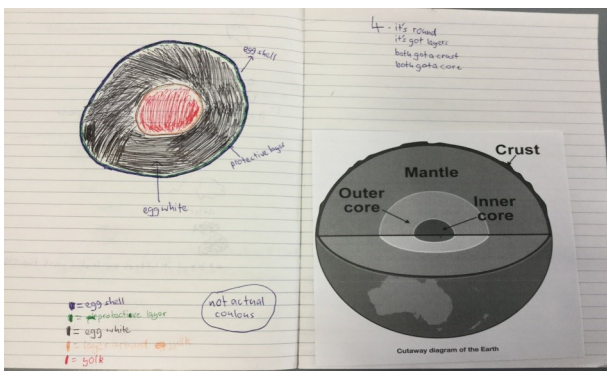 egg shell
protective layer
egg white
= egg shell
= protective layer
= egg white
= layer around yolk
= yolk
not actual
coulous
4 - it's round
it's got layers
both got a crust
both got a core
Crust
Mantle
Outer
core
Inner
core
Cutaway diagram of the Earth